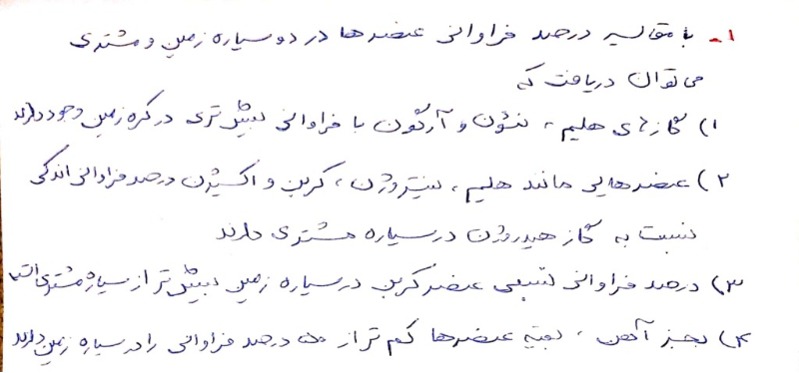 ۱- با مقایسه درصد فراوانی عنصرها در دو سیاره زمین و مشتری
می توان دریافت که
۱) گازهای هلیم، نئون و آرگون با فراوانی بیش تری در کره زمین وجود دارند
۲) عنصرهایی مانند هلیم، نیتروژن، کربن و اکسیژن درصد فراوانی اندکی
نسبت به گاز هیدروژن در سیاره مشتری دارند
۳) درصد فراوانی نسبی عنصر کربن در سیاره زمین بیش تر از سیاره مشتری است
۴) بجز آهن، بقیه عنصرها کم تر از ۵۰ درصد فراوانی را در سیاره زمین دارند